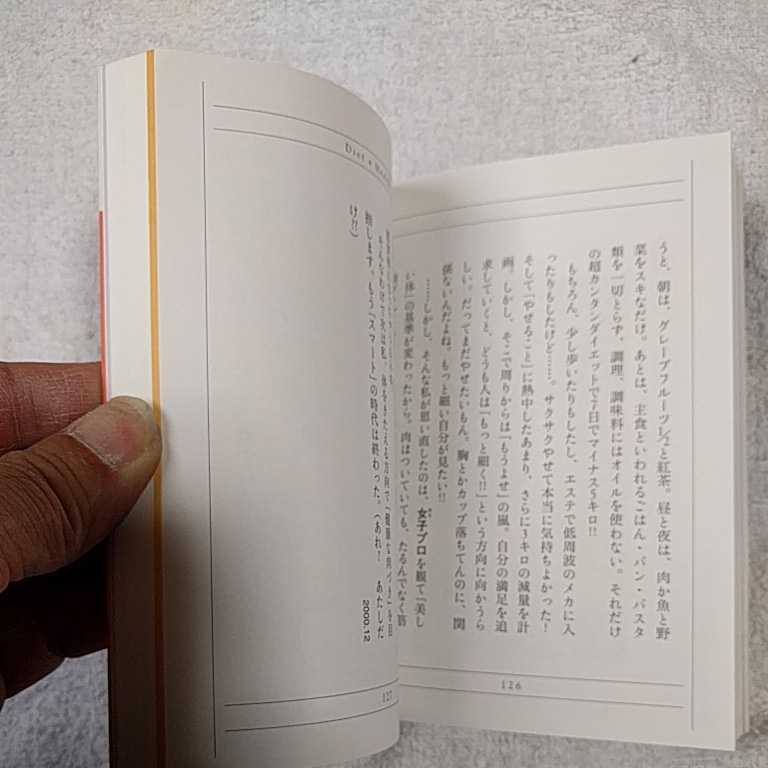 うと、朝は、グレープフルーツ1/2と紅茶。昼と夜は、肉か魚と野
菜をスキなだけ。あとは、主食といわれるごはん・パン・パスタ
類を一切とらず、調理、調味料にはオイルを使わない。それだけ
の超カンタンダイエットで7日でマイナス5キロ!!
もちろん、少し歩いたりもしたし、エステで低周波のメカに入
ったりもしたけど……。サクサクやせて本当に気持ちよかった!
そして「やせること」に熱中したあまり、さらに3キロの減量を計
画。しかし、そこで周りからは「もうよせ」の嵐。自分の満足を追
求していくと、どうも人は「もっと細く!!」という方向に向かうら
しい。だってまだやせたいもん。胸とかカップ落ちてんのに、関
係ないんだよね。もっと細い自分が見たい!!
……しかし、そんな私が思い直したのは、女子プロを観て「美し
い体」の基準が変わったから。肉はついていても、たるんでなく筋
126
Diet
そんなわけで次は私、体をきたえる方向で「健康な肉づき」を目
指します。もう「スマート」の時代は終わった。(あれ? あたしだ
け!?)
2000.12
127